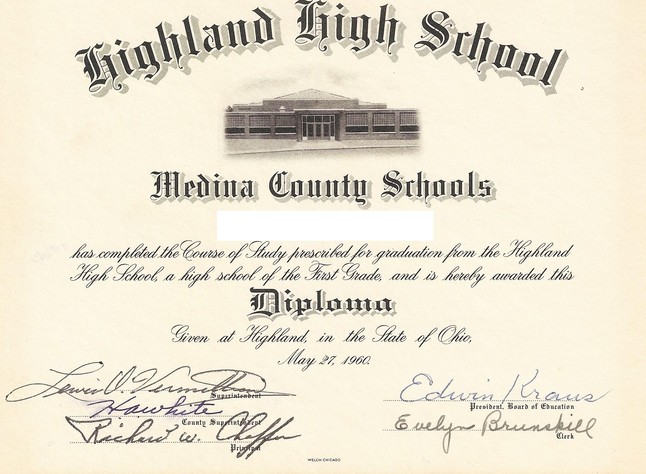 Highland High School
Medina County Schools
has completed the Course of Study prescribed for graduation from the Highland
High School, a high school of the First Grade, and is hereby awarded this
Diploma
Given at Highland, in the State of Ohio,
May 27, 1960.
Lewis
Superintendent
County Superintendent
Richard W.
Principal
Edwin Kraus
President, Board of Education
Evelyn Brunskill
Clerk
WELCH-CHICAGO